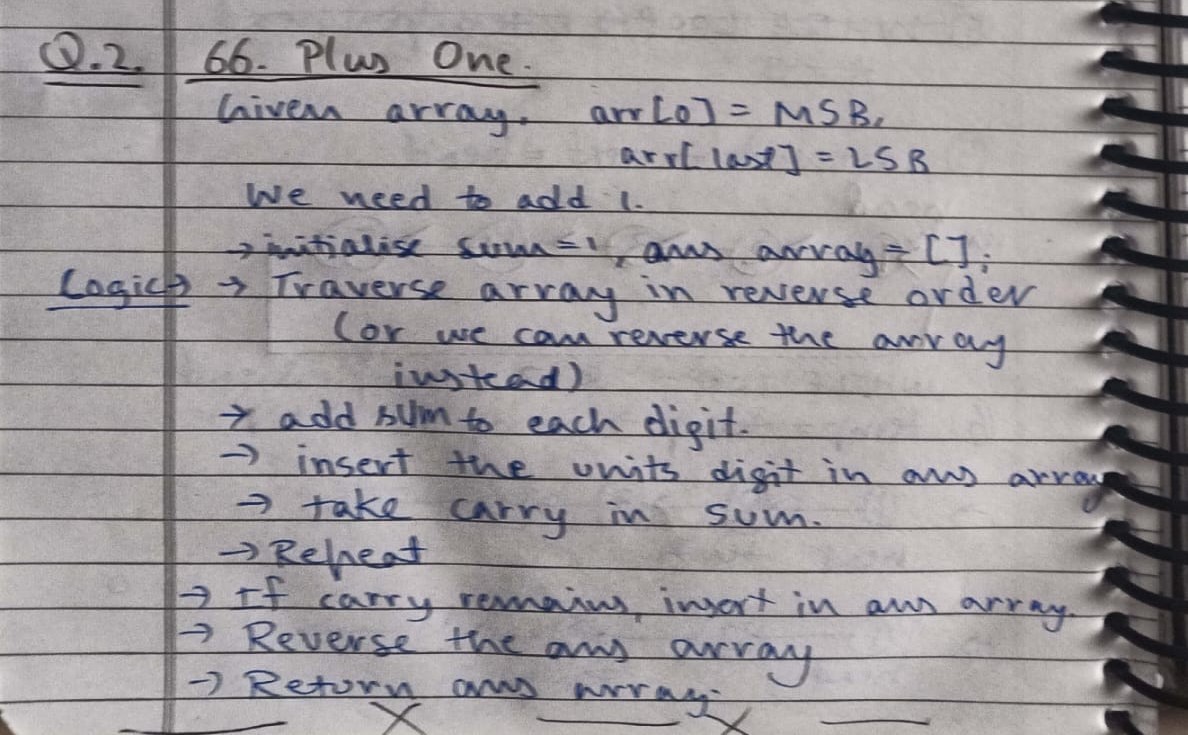 Q.2. 66. Plus One.
Given array, arr[0] = MSB,
arr[last] = LSB
We need to add 1.
→ initialise sum=1, ans array = [];
Logic→ → Traverse array in reverse order
(or we can reverse the array
instead)
→ add sum to each digit.
→ insert the units digit in ans array
→ take carry in sum.
→ Repeat
→ If carry remains, insert in ans array.
→ Reverse the ans array
→ Return ans array.
— X — X —